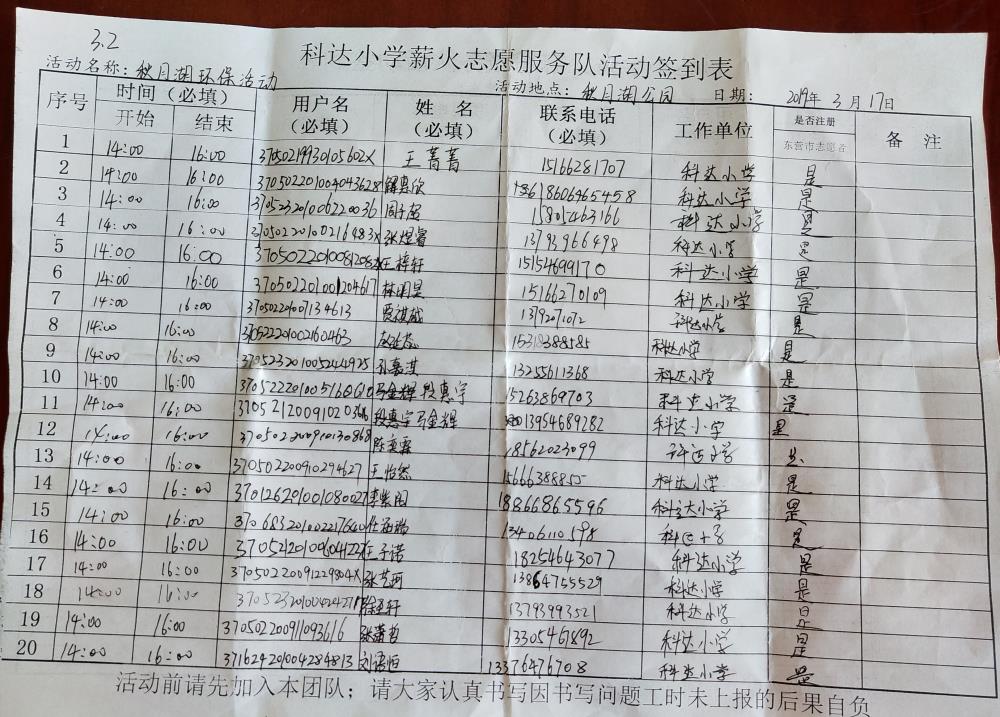 3.2
科达小学薪火志愿服务队活动签到表
活动名称：秋月湖环保活动 活动地点：秋月湖公园 日期： 2019年 3月17日
序号 时间（必填） 用户名（必填） 姓 名（必填） 联系电话（必填） 工作单位 是否注册东营市志愿者 备 注
开始 结束
1 14:00 16:00 37050219930105602X 王菁菁 15166281707 科达小学 是
2 14:00 16:00 370502201004043628 解惠欣 18606465458 科达小学 是
3 14:00 16:00 370523201006220036 周子超 15805463166 科达小学 是
4 14:00 16:00 37050220100216483X 张煜睿 13793966498 科达小学 是
5 14:00 16:00 王梓轩 15154699170 科达小学 是
6 14:00 16:00 370502201001204617 林明昊 15166270109 科达小学 是
7 14:00 16:00 科达小学 是
8 14:00 16:00 科达小学 是
9 14:00 16:00 370523201005244925 孙嘉淇 13255611368 科达小学 是
10 14:00 16:00 段惠宇 15263869703 科达小学 是
11 14:00 16:00 13954689282 科达小学 是
12 14:00 16:00 370502200910130868 陈奕霖 18562023099 科达小学 是
13 14:00 16:00 370502200910294627 王怡然 科达小学 是
14 14:00 16:00 370126201001080027 18866865596 科达小学 是
15 14:00 16:00 370683201002217640 13406110598 科达小学 是
16 14:00 16:00 子诺 18254643077 科达小学 是
17 14:00 16:00 37050220091229804X 张艺珂 13864755529 科达小学 是
18 14:00 16:00 13793993521 科达小学 是
19 14:00 16:00 370502200911093616 张萧哲 13305461892 科达小学 是
20 14:00 16:00 371624201004284813 刘语恒 13376476708 科达小学 是
活动前请先加入本团队；请大家认真书写因书写问题工时未上报的后果自负